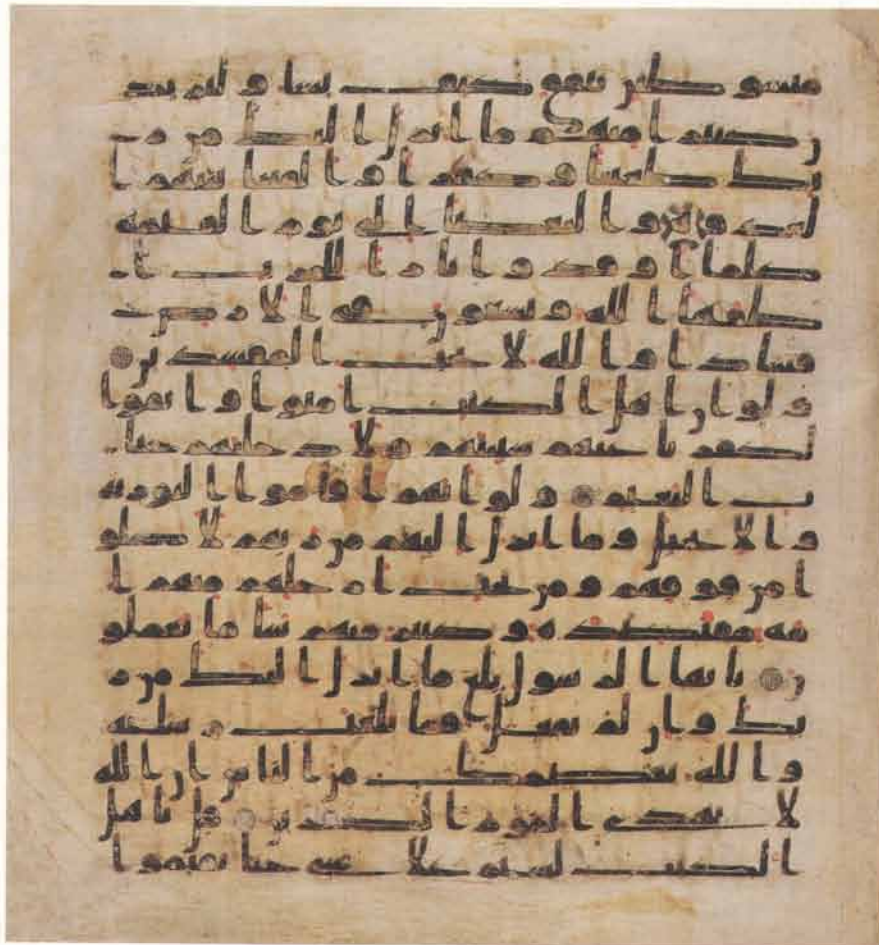 مبسوطتن ينفق كيف يشا و ليزيد
ن كثيرا منهم ما انزل اليك من ر
بك طغينا وكفرا والقينا بينهم ا
لعدوة والبغضا الى يوم القيمة
كلما اوقدوا نارا للحرب ا
طفاها الله ويسعون في الارض
فسادا والله لا يحب المفسدين
ولو ان اهل الكتب امنوا واتقوا
لكفرنا عنهم سيتهم ولادخلنهم جنا
ت النعيم ولو انهم اقاموا التورية
والانجيل وما انزل اليهم من ربهم لاكلو
ا من فوقهم ومن تحت ارجلهم منهم ا
مة مقتصدة وكثير منهم سا ما يعملو
ن يايها الرسول بلغ ما انزل اليك من ر
بك وان لم تفعل فما بلغت رسلته
والله يعصمك من الناس ان الله
لا يهدي القوم الكفرين قل ياهل
الكتب لستم على شي حتى تقيموا